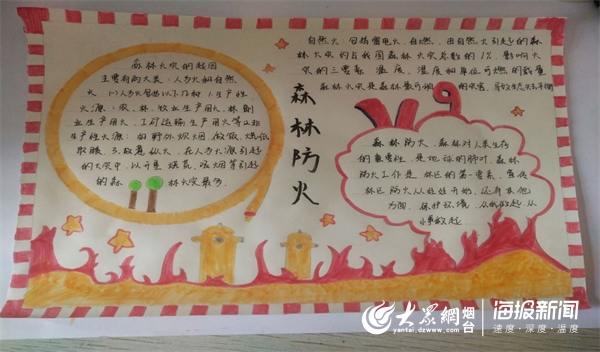 森林火灾的起因
主要有两大类:人为火和自然
火。(1)人为火包括以下几种 1.生产性
火源:农、林、牧业生产用火,林副
业生产用火,工矿运输生产用火等2.非
生产性火源:如野外炊烟,做饭,烧纸
取暖;3.故意纵火,在人为火源引起
的火灾中,以开垦
烧荒、吸烟等引起
的森林火灾最多。
森林防火
自然火:包括雷电火,自燃,由自然火引起的森
林火灾约占我国森林火灾总数的1%,影响火
灾的三要素:温度、湿度和单位可燃的载量
森林火灾是森林最可怕的灾害,
森林防火,森林对人类生存
的重要性,是地球的肺叶,森林
防火工作是林区的第一要素,
林区防火从娃娃开始,还有其他
方面,保护环境,从我做起,从
小事做起
大众网 烟台
yantai.dzwww.com
海报新闻
速度·深度·温度